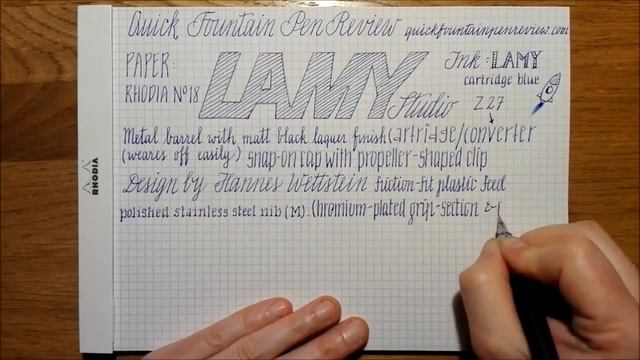 Quick Fountain Pen Review quickfountainpenreview.com
PAPER:
RHODIA Nº18
LAMY
Studio
Ink: LAMY
cartridge blue
Z 27
Metal barrel with matt black laquer finish Cartridge/converter
(weares off easily) snap-on cap with propeller-shaped clip
Design by Hannes Wettstein friction-fit plastic feed
polished stainless steel nib (M). Chromium-plated grip-section &
RHODIA